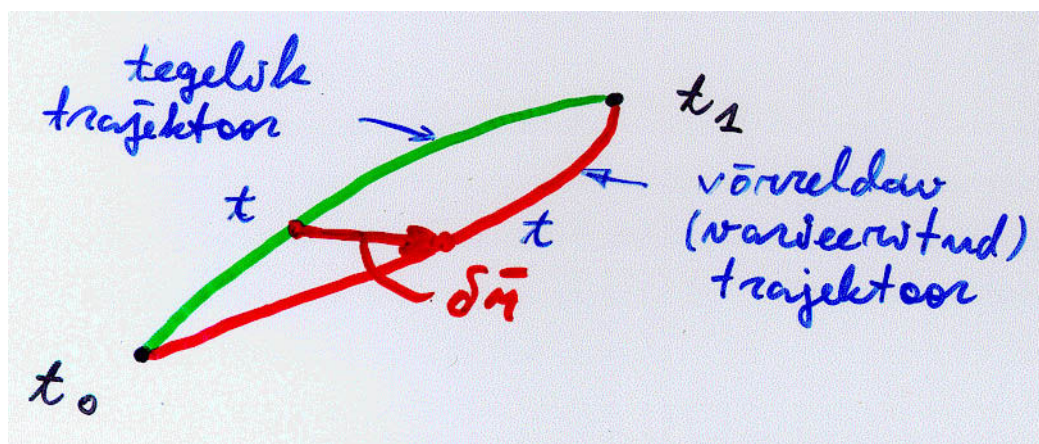 tegelik
trajektoor
t₁
võrreldav
(varieeritud)
trajektoor
t
t
δr̄
t₀